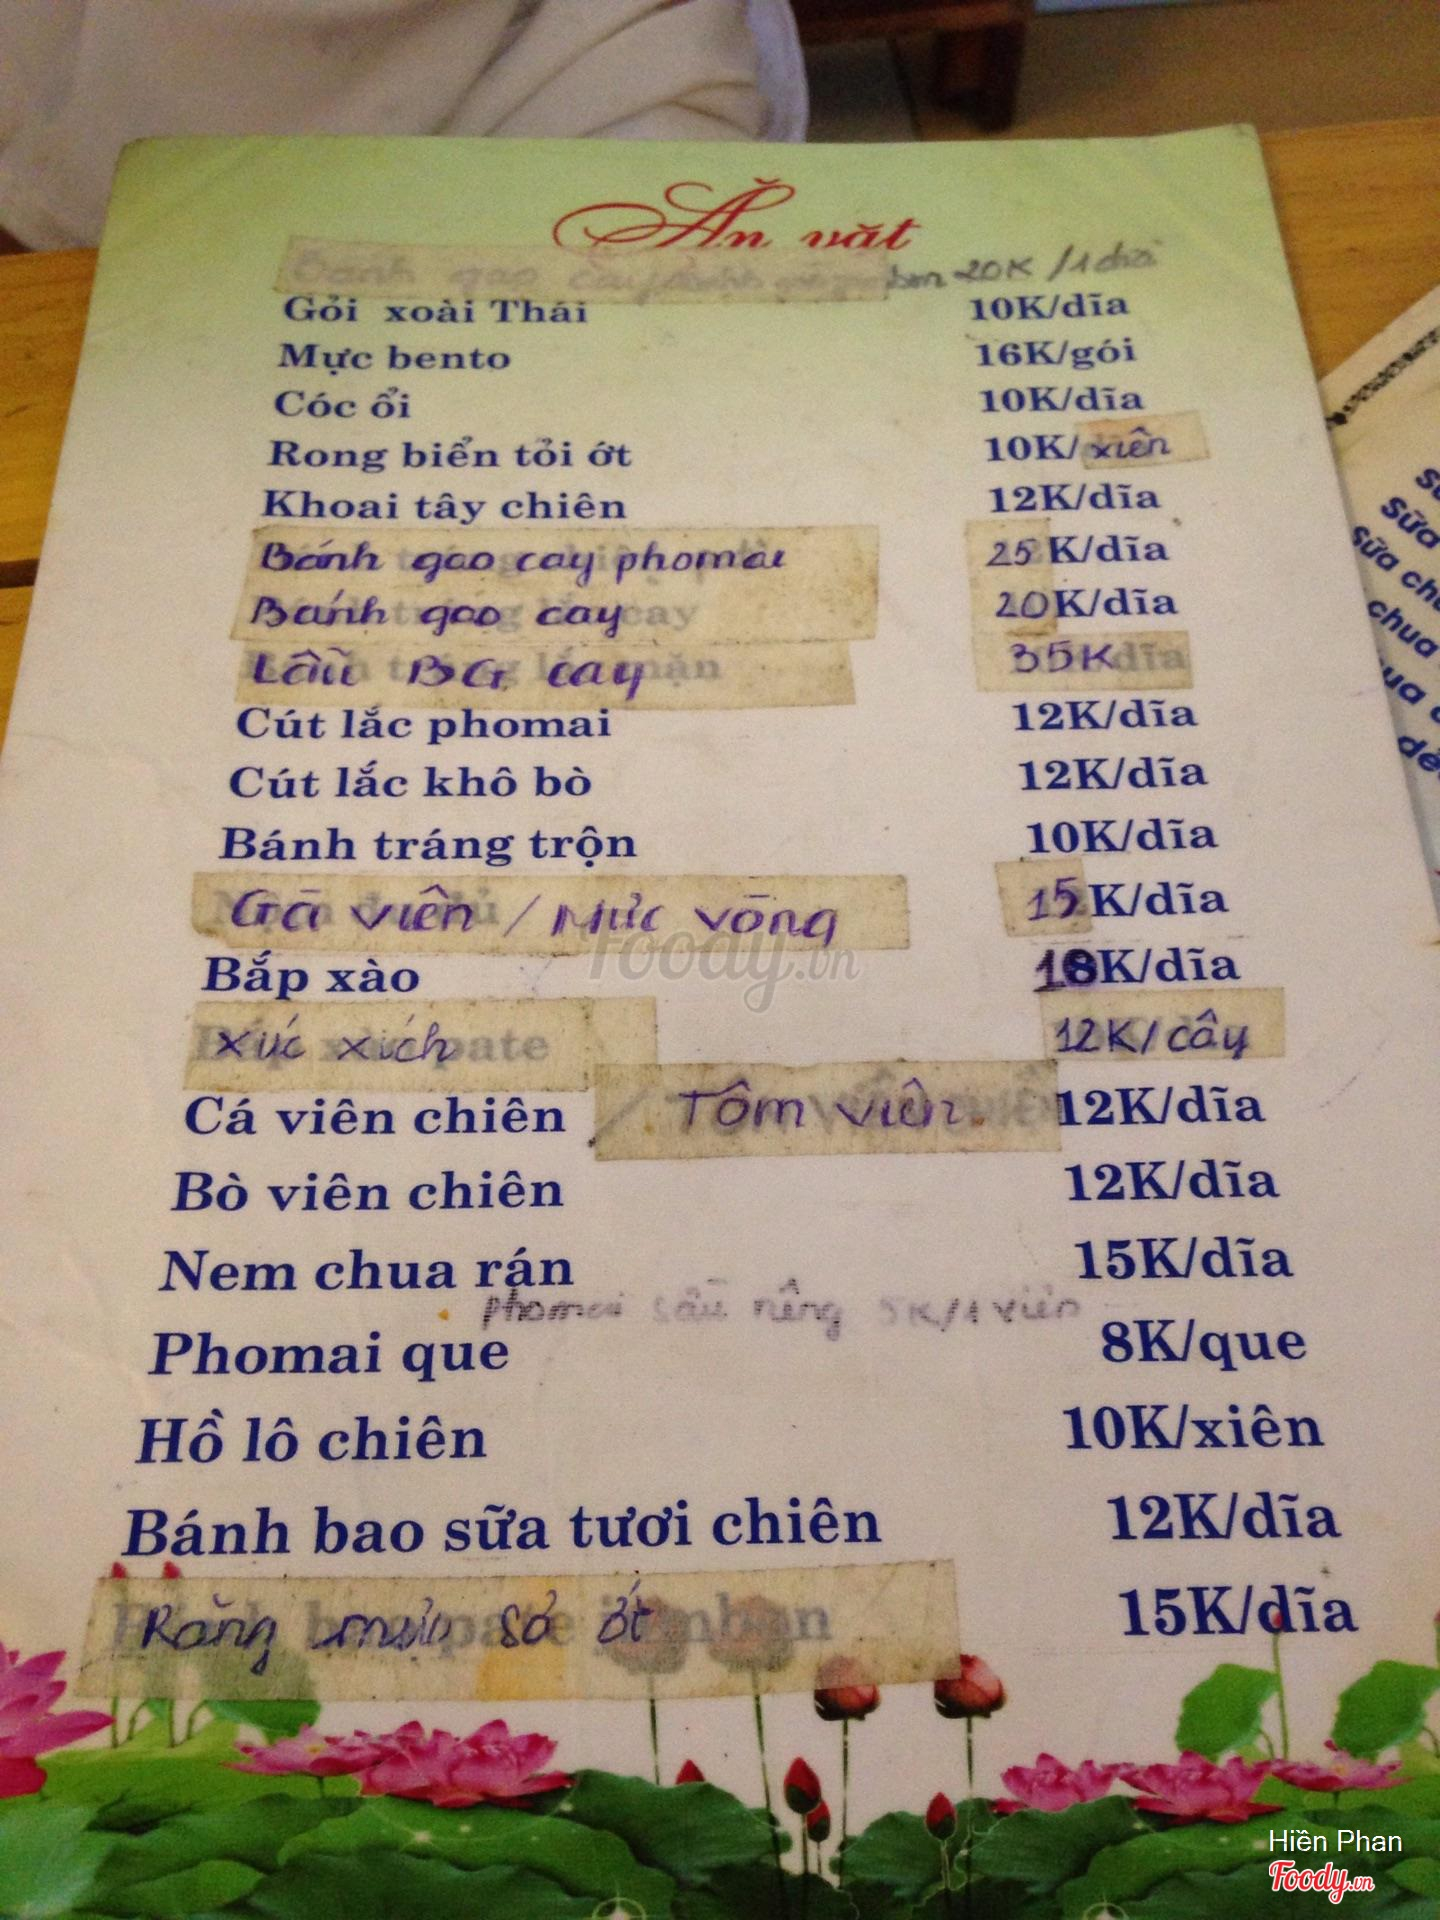 Ăn vặt
Bánh gạo cay 20K/1 dĩa
Gỏi xoài Thái 10K/dĩa
Mực bento 16K/gói
Cóc ổi 10K/dĩa
Rong biển tỏi ớt 10K/xiên
Khoai tây chiên 12K/dĩa
Bánh gạo cay phomai 25K/dĩa
Bánh gạo cay 20K/dĩa
Lẩu BG cay 35K
Cút lắc phomai 12K/dĩa
Cút lắc khô bò 12K/dĩa
Bánh tráng trộn 10K/dĩa
Gà viên / Mực vòng 15K/dĩa
Bắp xào 18K/dĩa
xúc xích 12K/cây
Cá viên chiên / Tôm viên 12K/dĩa
Bò viên chiên 12K/dĩa
Nem chua rán 15K/dĩa
phomai sầu riêng 5K/1 viên
Phomai que 8K/que
Hồ lô chiên 10K/xiên
Bánh bao sữa tươi chiên 12K/dĩa
Răng mực sả ớt 15K/dĩa
Sữa
Sữa chua
chua
Foody.vn
Hiền Phan
Foody.vn